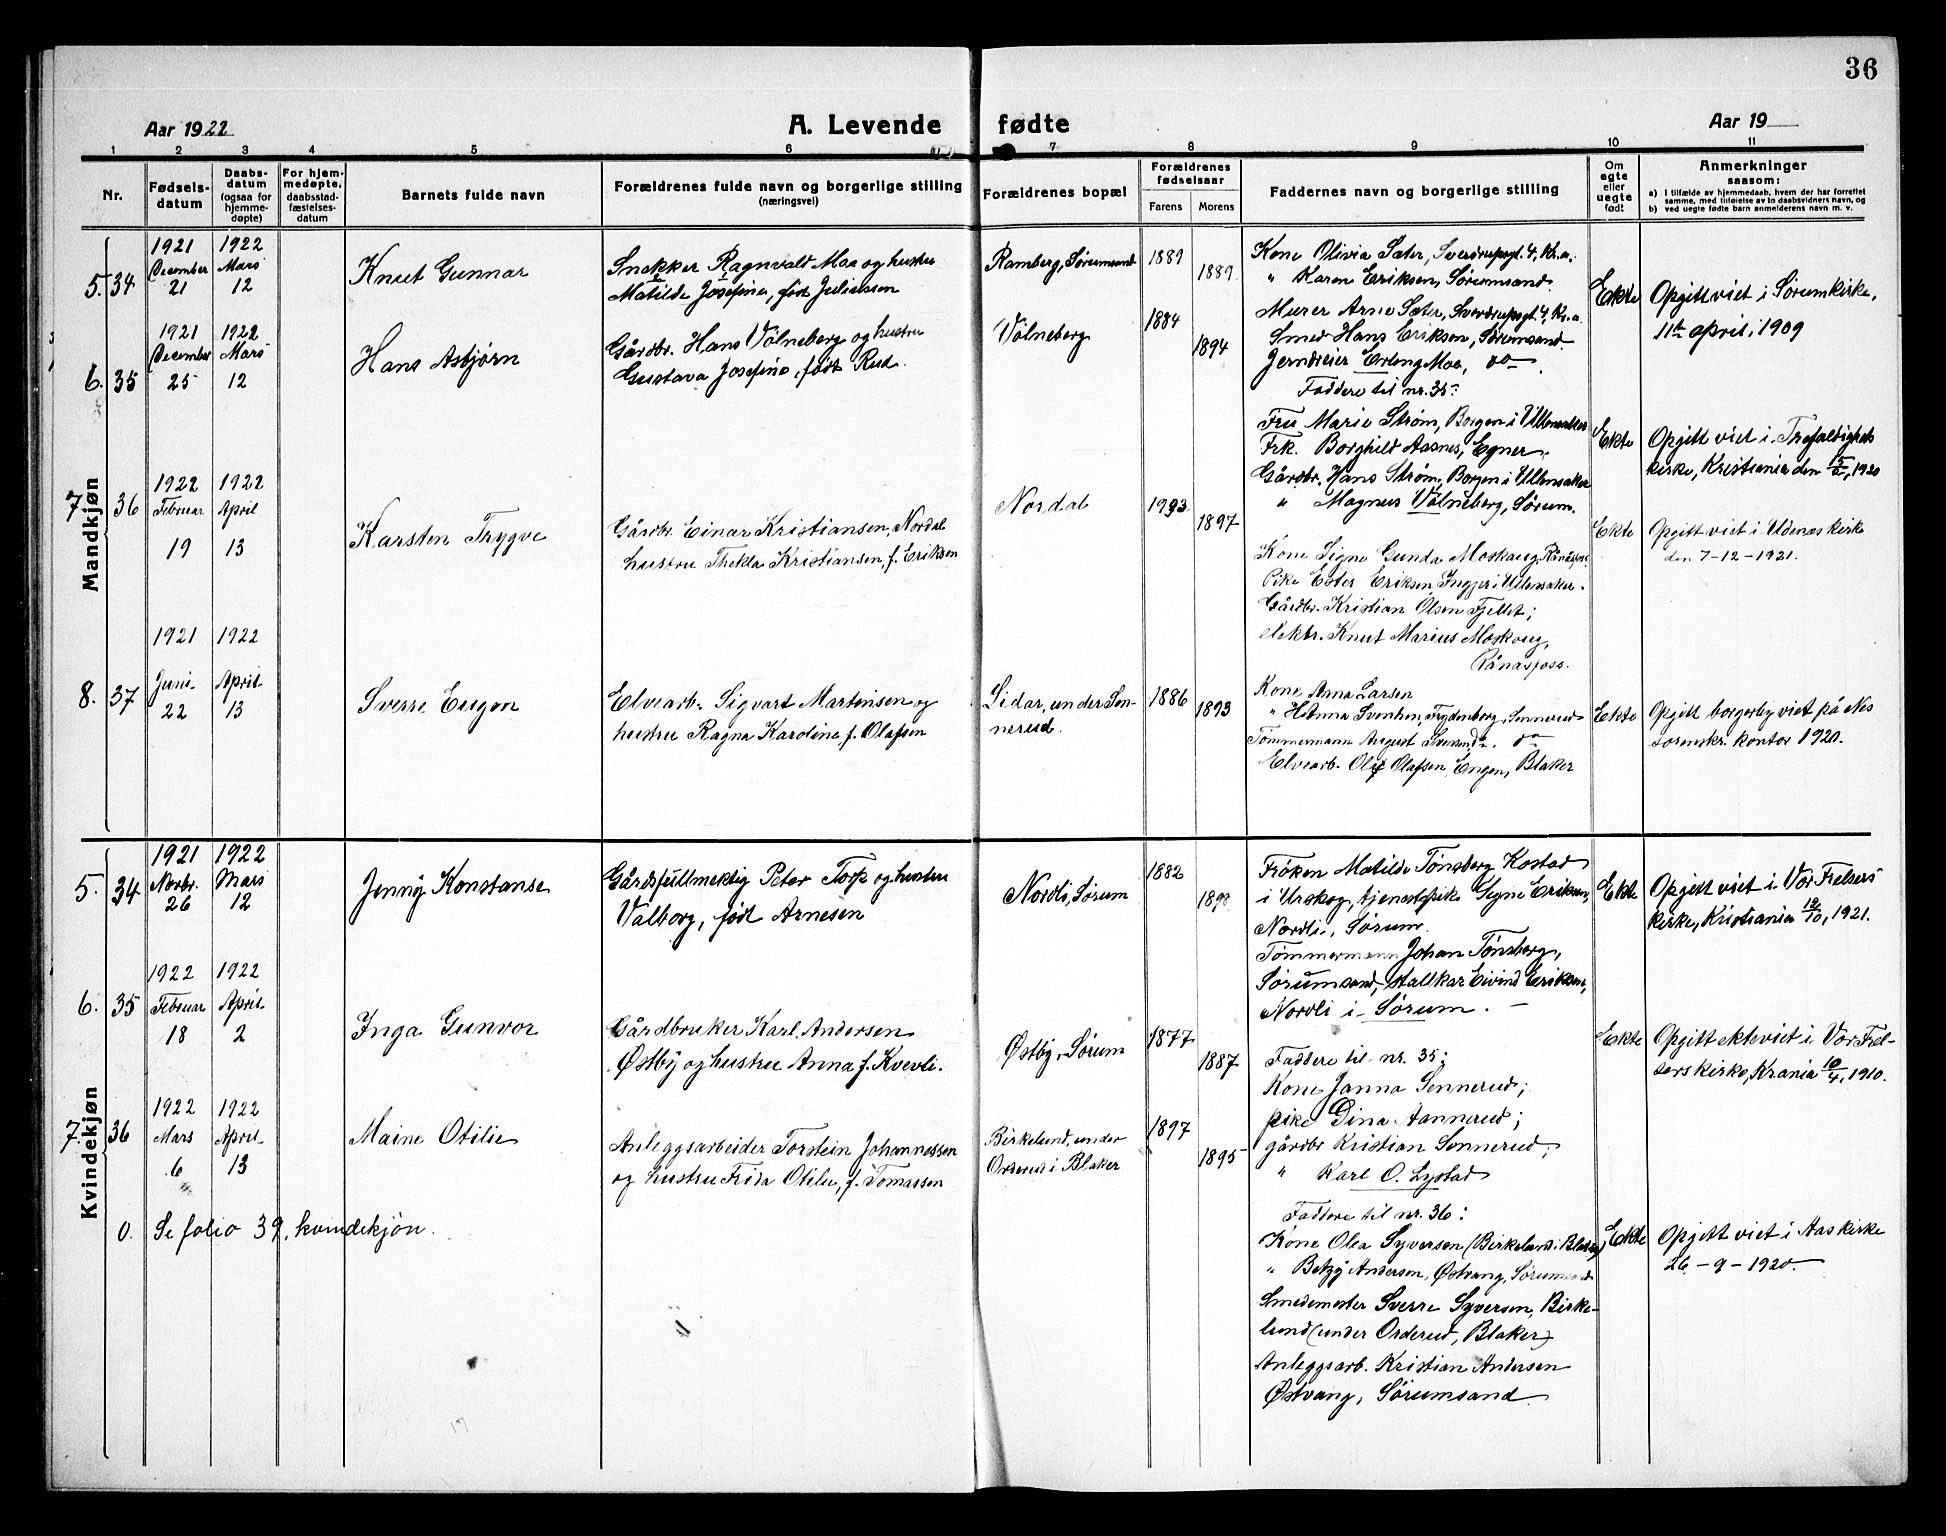 36
Aar 1922
A. Levende fødte
Aar 19
1 2 3 4 5 6 7 8 9 10 11
Nr.
Fødsels-
datum
Daabs-
datum
(ogsaa for
hjemme-
døpte)
For hjem-
medøpte,
daabsstad-
fæstelses-
datum
Barnets fulde navn
Forældrenes fulde navn og borgerlige stilling
(næringsvei)
Forældrenes bopæl
Forældrenes
fødselsaar
Farens
Morens
Faddernes navn og borgerlige stilling
Om
egte
eller
uegte
født
Anmerkninger
saasom:
a) I tilfælde av hjemmedaab, hvem der har forrettet
samme, med tilføielse av to daabsvidners navn, og
b) ved uegte fødte barn anmelderens navn m. v.
Mandkjøn
5. 34
1921
December
21
1922
Mars
12
Knut Gunnar
Snekker Ragnvald Moa og hustru
Matilde Josefine, født Juliussen
Ramberg, Sørumsand
1889
1889
Kone Olivia Sæter, Sverdrupsgt. 4, Kr.a.
" Karen Eriksen, Sørumsand.
Murer Arne Sæter, Sverdrupsgt. 4, Kr.a.
Smed Hans Eriksen, Sørumsand.
Jerndreier Erling Moa, do
Ekte
Opgitt viet i Sørum kirke,
11te april, 1909
6. 35
1921
December
25
1922
Mars
12
Hans Asbjørn
Gårdbr. Hans Vølneberg og hustru
Gustava Josefine, født Rud.
Vølneberg
1884
1894
Faddere til nr. 35:
Fru Marie Strøm, Borgen i Ullensaker
Frk. Borghild Aasnes, Egner.
Gårdbr. Hans Strøm, Borgen i Ullensaker
" Magnus Vølneberg, Sørum.
Ekte
Opgitt viet i Trefoldighets
kirke, Kristiania den 15/2, 1920
7. 36
1922
Februar
19
1922
April
13
Karsten Trygve
Gårdbr. Einar Kristiansen, Nordal
hustru Thekla Kristiansen, f. Eriksen
Nordal
1993
1897
Kone Signe Gunda Moskaug, Rånåsfoss.
Pike Ester Eriksen, Ingjer i Ullensaker.
Gårdbr. Kristian Olsen Fjellet;
elektr. Knut Marius Moskaug,
Rånåsfoss.
Ekte
Opgitt viet i Udenes kirke
den 7-12-1921.
8. 37
1921
Juni
22
1922
April
13
Sverre Eugen
Elvearb. Sigvart Martinsen og
hustru Ragna Karoline, f. Olafsen
Lidar, under Sen-
nerud.
1886
1893
Kone Anna Larsen
" Hanna Svendsen, Frydenberg, Sennerud
Tømmermann August Svendsen. do
Elvearb. Olaf Olafsen Engen, Blaker
Ekte
Opgitt borgerlig viet på Nes
sorenskr. kontor 1920.
Kvindekjøn
5. 34
1921
Novbr.
26
1922
Mars
12
Jenny Konstanse
Gårdsfullmektig Peter Torp og hustru
Valborg, født Arnesen
Nordli, Sørum
1882
1898
Frøken Matilde Tønsberg Kostad
i Urskog, tjenestpike Signe Eriksen,
Nordli, Sørum.
Tømmermann Johan Tønsberg,
Sørumsand, stallkar Eivind Eriksen,
Nordli i Sørum.
Ekte
Opgitt viet i Vor Frelsers
kirke, Kristiania 12/10, 1921.
6. 35
1922
Februar
18
1922
April
2
Inga Gunvor
Gårdbruker Karl Andersen
Østby og hustru Anna f. Kvevli.
Østby, Sørum
1877
1887
Faddere til nr. 35:
Kone Janna Sennerud;
pike Dina Aannerud;
gårdbr Kristian Sennerud;
" Karl O. Lystad
Ekte
Opgitt ekteviet i Vor Frel-
sers kirke, Krania 10/4, 1910.
7. 36
1922
Mars
6
1922
April
13
Maine Otilie
Anleggsarbeider Torstein Johannessen
og hustru Frida Otilie, f. Tomassen
Birkelund, under
Orderud i Blaker
1897
1895
Faddere til nr. 36:
Kone Olea Syversen (Birkelund i Blaker)
" Betzy Andersen, Østvang, Sørumsand
Smedemester Sverre Syversen, Birke-
lund (under Orderud, Blaker)
Anleggsarb. Kristian Andersen
Østvang, Sørumsand
Ekte
Opgitt viet i Aas kirke
26-9-1920.
0. Se folio 39, kvindekjøn.